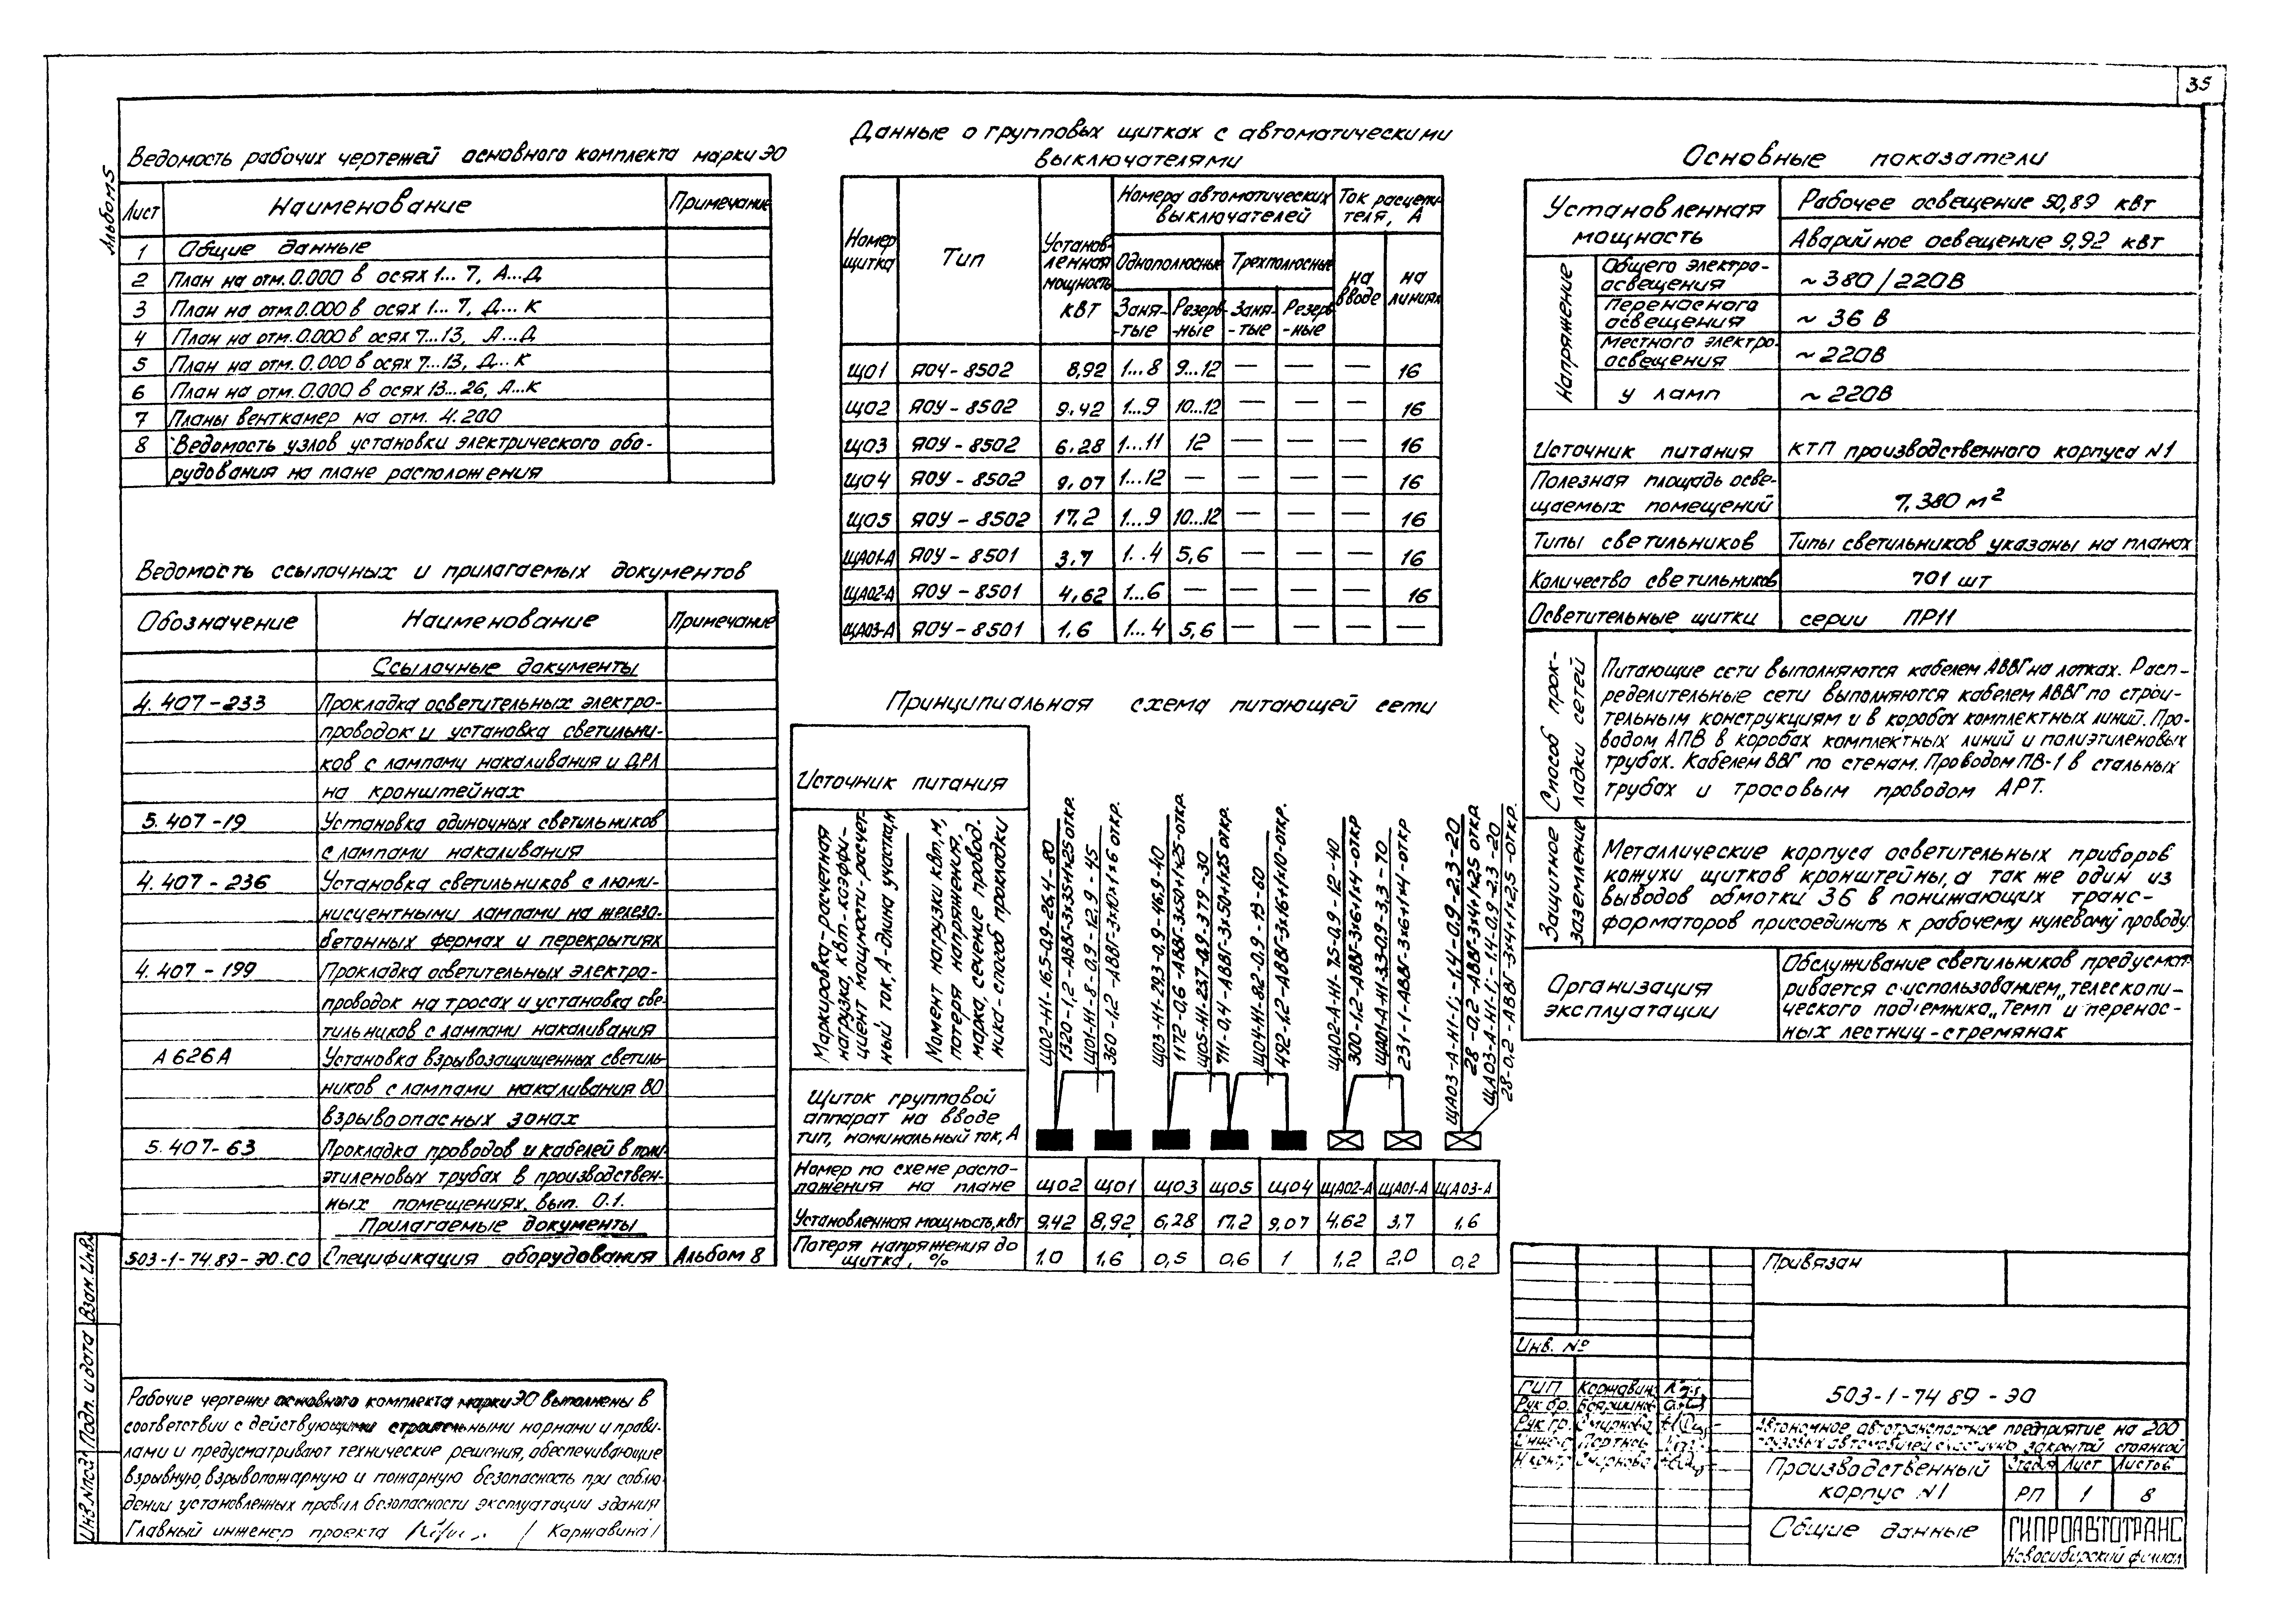 35
Альбом 5
Ведомость рабочих чертежей основного комплекта марки ЭО
Лист Наименование Примечание
1 Общие данные
2 План на отм. 0.000 в осях 1...7, А...Д
3 План на отм. 0.000 в осях 1...7, Д...К
4 План на отм. 0.000 в осях 7...13, А...Д
5 План на отм. 0.000 в осях 7...13, Д...К
6 План на отм. 0.000 в осях 13...26, А...К
7 Планы венткамер на отм. 4.200
8 Ведомость узлов установки электрического обо-
рудования на плане расположения
Ведомость ссылочных и прилагаемых документов
Обозначение Наименование Примечание
Ссылочные документы
4.407-233 Прокладка осветительных электро-
проводок и установка светильни-
ков с лампами накаливания и ДРЛ
на кронштейнах
5.407-19 Установка одиночных светильников
с лампами накаливания
4.407-236 Установка светильников с люми-
нисцентными лампами на железо-
бетонных фермах и перекрытиях
4.407-199 Прокладка осветительных электро-
проводок на тросах и установка све-
тильников с лампами накаливания
А626А Установка взрывозащищенных светиль
ников с лампами накаливания во
взрывоопасных зонах
5.407-63 Прокладка проводов и кабелей в поли
этиленовых трубах в производствен-
ных помещениях. вып. 0.1.
Прилагаемые документы
503-1-74.89-ЭО.СО Спецификация оборудования Альбом 8
Рабочие чертежи основного комплекта марки ЭО выполнены в
соответствии с действующими строительными нормами и прави-
лами и предусматривают технические решения, обеспечивающие
взрывную, взрывопожарную и пожарную безопасность при соблю
дении установленных правил безопасности эксплуатации здания
Главный инженер проекта / Коржавина/
Данные о групповых щитках с автоматическими
выключателями
Номер щитка Тип Установленная мощность кВт Номера автоматических выключателей Ток расцепителя, А
Однополюсные Трехполюсные на вводе на линиях
Заня-тые Резерв-ные Заня-тые Резерв-ные
ЩО1 ЯОУ-8502 8,92 1...8 9...12 — — — 16
ЩО2 ЯОУ-8502 9.42 1...9 10...12 — — — 16
ЩО3 ЯОУ-8502 6.28 1...11 12 — — — 16
ЩО4 ЯОУ-8502 9,07 1...12 — — — — 16
ЩО5 ЯОУ-8502 17,2 1...9 10...12 — — — 16
ЩАО1-А ЯОУ-8501 3.7 1..4 5,6 — — — 16
ЩАО2-А ЯОУ-8501 4,62 1...6 — — — — 16
ЩАО3-А ЯОУ-8501 1,6 1...4 5,6 — — — —
Принципиальная схема питающей сети
Источник питания
Маркировка-расчетная
нагрузка, кВт-коэффи-
циент мощности-расчет-
ный ток, А-длина участка, м
Момент нагрузки кВт,м,
потеря напряжения,
марка, сечение провод.
ника-способ прокладки
ЩО2-Н1-16,5-0,9-26,4-80
1320-1,2-АВВГ-3х35+1х25 откр.
ЩО1-Н1-8-0,9-12,9-45
360-1,2-АВВГ-3х10+1х6 откр.
ЩО3-Н1-29,3-0,9-46,9-40
1172-0,6-АВВГ-3х50+1х25-откр.
ЩО5-Н1-23,7-0,9-37,9-30
711-0,4-АВВГ-3х50+1х25 откр.
ЩО4-Н1-8.2-0.9-13-60
492-1,2-АВВГ-3х16+1х10-откр.
ЩАО2-А-Н1-7,5-0,9-12-40
300-1,2-АВВГ-3х6+1х4-откр
ЩАО1-А-Н1-3,3-0,9-3,3-70
231-1-АВВГ-3х6+1х4-откр
ЩАО3-А-Н1-1;-1,4-0,9-2,3-20
28-0,2-АВВГ-3х4+1х2,5 откр
ЩАО3-А-Н1-1;-1.4-0.9-2.3-20
28-0.2-АВВГ-3х4+1х2,5-откр.
Щиток групповой
аппарат на вводе
тип, номинальный ток, А
Номер по схеме распо-
ложения на плане ЩО2 ЩО1 ЩО3 ЩО5 ЩО4 ЩАО2-А ЩАО1-А ЩАО3-А
Установленная мощность, кВт 9,42 8,92 6,28 17,2 9,07 4,62 3,7 1,6
Потеря напряжения до
щитка, % 1,0 1,6 0,5 0,6 1 1,2 2,0 0,2
Основные показатели
Установленная Рабочее освещение 50,89 кВт
мощность Аварийное освещение 9,92 кВт
Напряжение
Общего электро-
освещения ~380/220В
Переносного
освещения ~36 В
Местного электро-
освещения ~220В
у ламп ~220В
Источник питания КТП производственного корпуса N1
Полезная площадь осве-
щаемых помещений 7,380 м²
Типы светильников Типы светильников указаны на планах
Количество светильников 701 шт
Осветительные щитки серии ПР11
Способ прок-
ладки сетей
Питающие сети выполняются кабелем АВВГ на лотках. Расп-
ределительные сети выполняются кабелем АВВГ по строи-
тельным конструкциям и в коробах комплектных линий. Про-
водом АПВ в коробах комплектных линий и полиэтиленовых
трубах. Кабелем ВВГ по стенам. Проводом ПВ-1 в стальных
трубах и тросовым проводом АРТ.
Защитное
заземление
Металлические корпуса осветительных приборов
кожухи щитков кронштейны, а так же один из
выводов обмотки 36 В понижающих транс-
форматоров присоединить к рабочему нулевому проводу.
Организация
эксплуатации
Обслуживание светильников предусмат-
ривается с использованием „телескопи-
ческого подъемника „Темп и перенос-
ных лестниц-стремянок
Привязан
Инв. №
ГИП Коржавин
Рук бр. Бояршинов
Рук гр. Смирнова
Н контр. Смирнова
503-1-74 89-ЭО
Автономное автотранспортное предприятие на 200
грузовых автомобилей с частично закрытой стоянкой
Производственный
корпус N1
Стадия Лист Листов
РП 1 8
Общие данные
ГИПРОАВТОТРАНС
Новосибирский филиал
Взам. инв.
Подп. и дата
Инв. N под